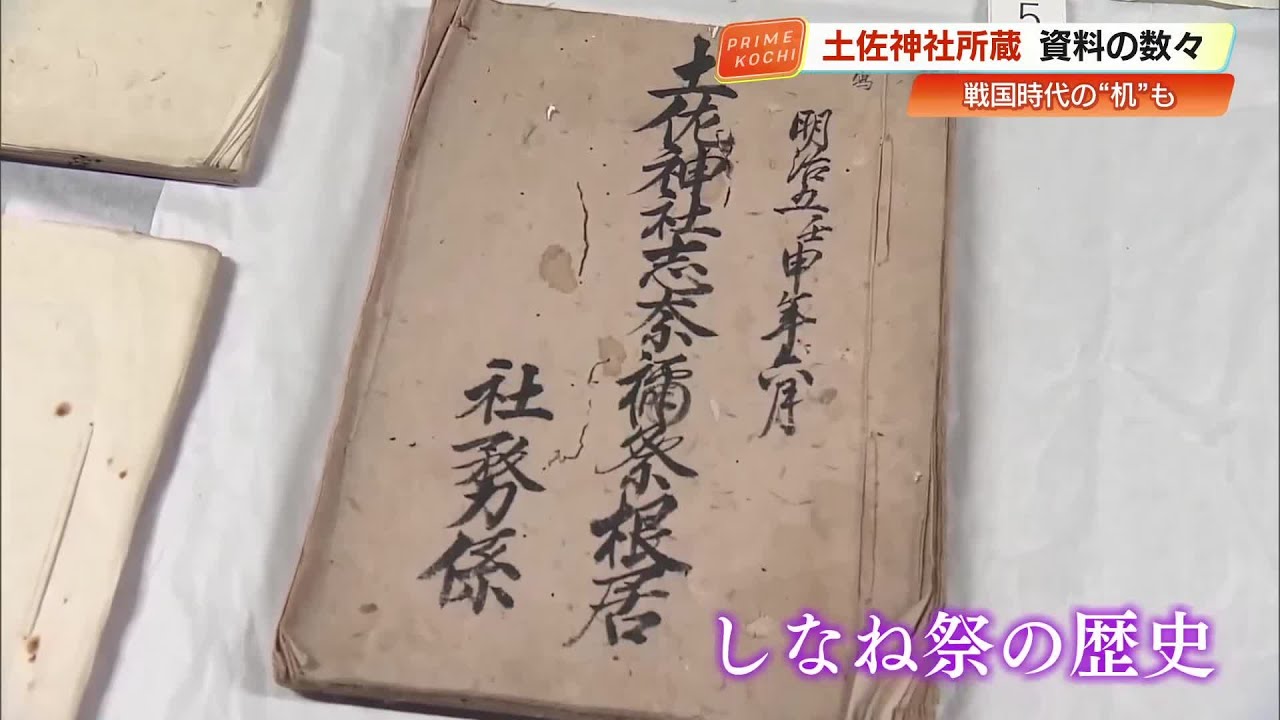 PRIME
KOCHI
土佐神社所蔵 資料の数々
戦国時代の“机”も
5
写
明治五壬申年六月
土佐神社志奈禰祭根居
社務係
しなね祭の歴史